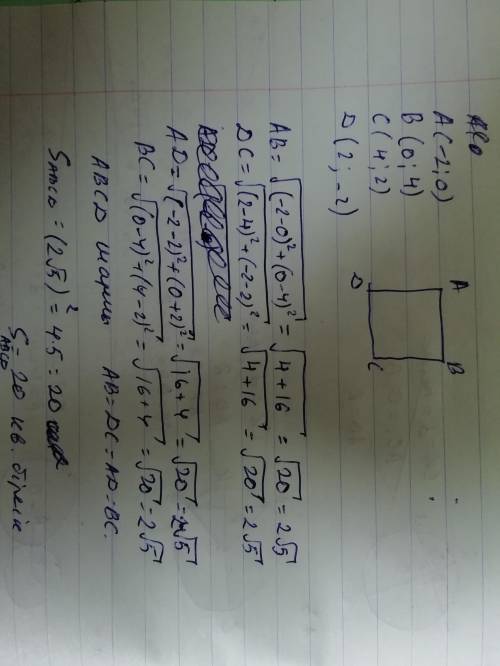 A(-2;0)
B(0;4)
C(4;2)
D(2;-2)
A B
D C
AB = √(-2-0)²+(0-4)² = √4+16 = √20 = 2√5
DC = √(2-4)²+(-2-2)² = √4+16 = √20 = 2√5
AD = √(-2-2)²+(0+2)² = √16+4 = √20 = 2√5
BC = √(0-4)²+(4-2)² = √16+4 = √20 = 2√5
ABCD шаршы AB=DC=AD=BC.
SABCD = (2√5)² = 4·5 = 20
SABCD = 20 кв. бірлік